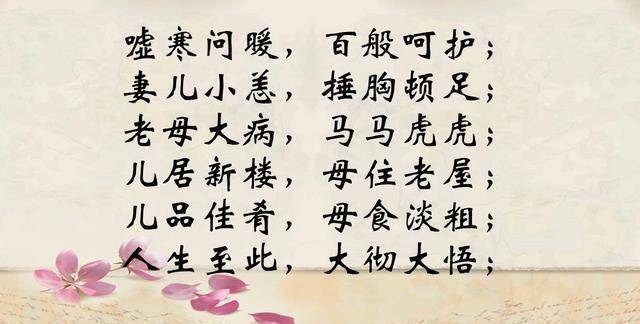 嘘寒问暖，百般呵护；
妻儿小恙，捶胸顿足；
老母大病，马马虎虎；
儿居新楼，母住老屋；
儿品佳肴，母食淡粗；
人生至此，大彻大悟；